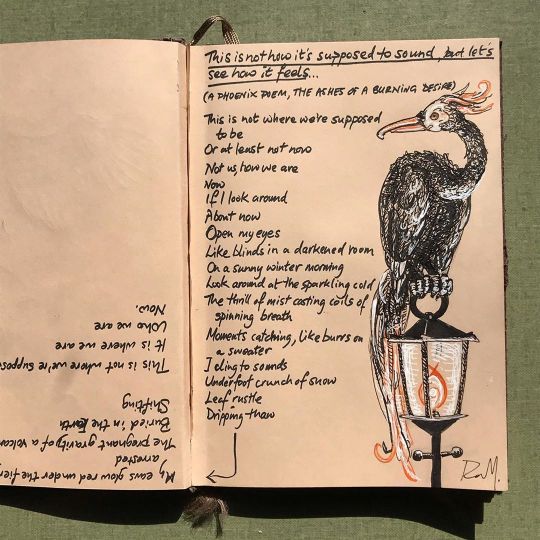 This is not how it's supposed to sound, but let's
see how it feels...
(A PHOENIX POEM, THE ASHES OF A BURNING DESIRE)
This is not where we're supposed
to be
Or at least not now
Not us, how we are
Now
If I look around
About now
Open my eyes
Like blinds in a darkened room
On a sunny winter morning
Look around at the sparkling cold
The thrill of mist casting coils of
spinning breath
Moments catching, like burrs on
a sweater
I cling to sounds
Underfoot crunch of snow
Leaf rustle
Dripping thaw
My ears glow red under the
arrested
The pregnant gravity of a
Buried in the Earth
Shifting
This is not where we're
It is where we are
Who we are
Now.